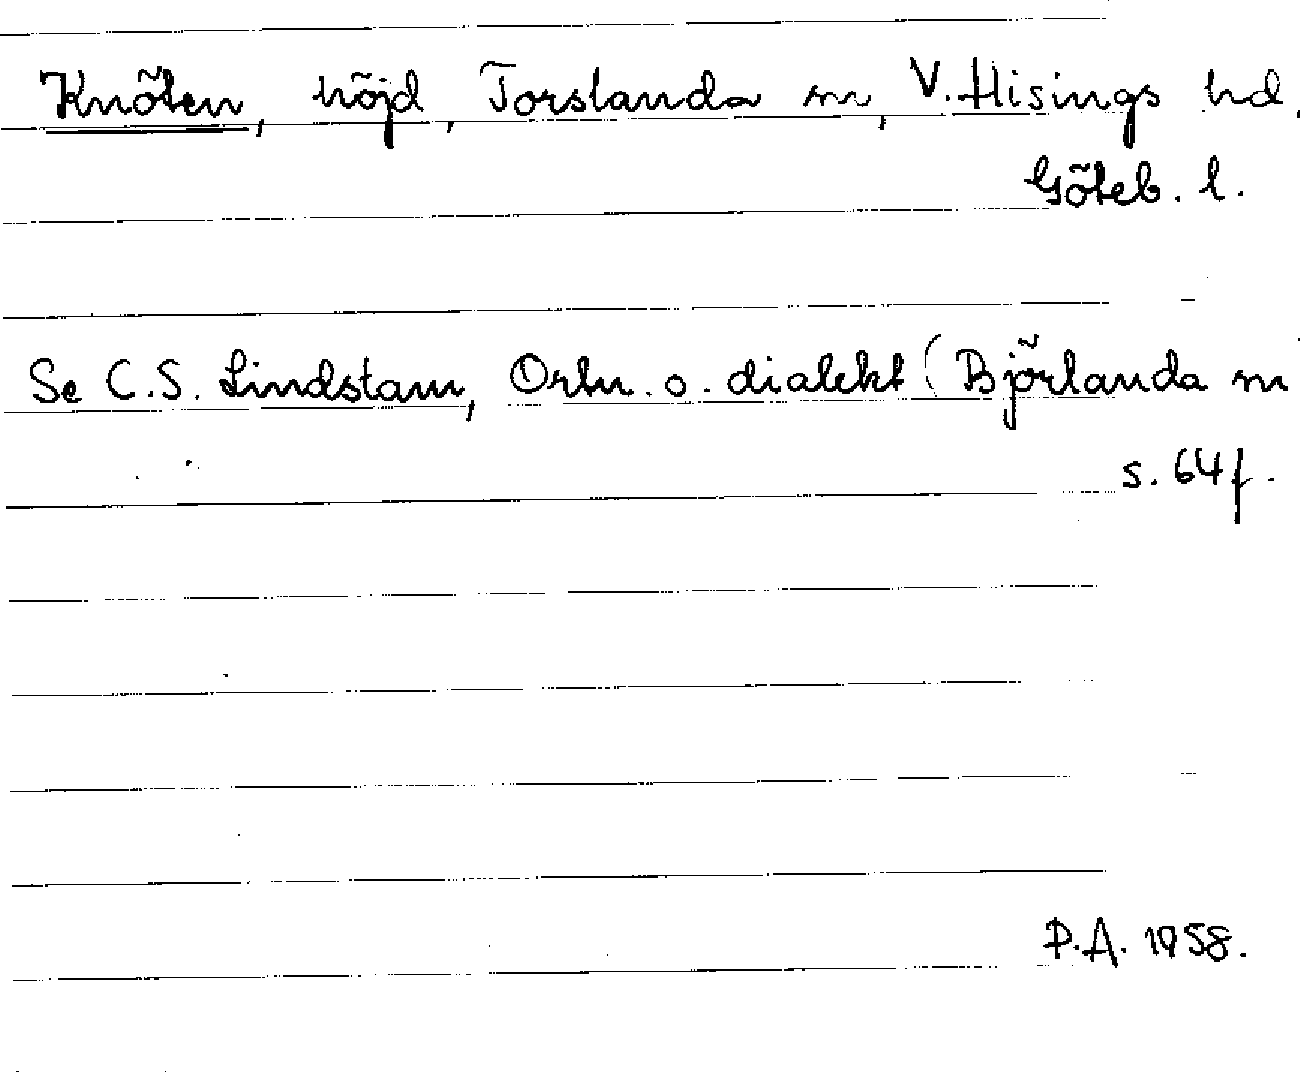 Knöten, höjd, Torslanda sn, V. Hisings hd,
Göteb. l.
Se C.S. Lindstam, Ortn. o. dialekt (Björlanda sn
s. 64 f.
P.A. 1958.